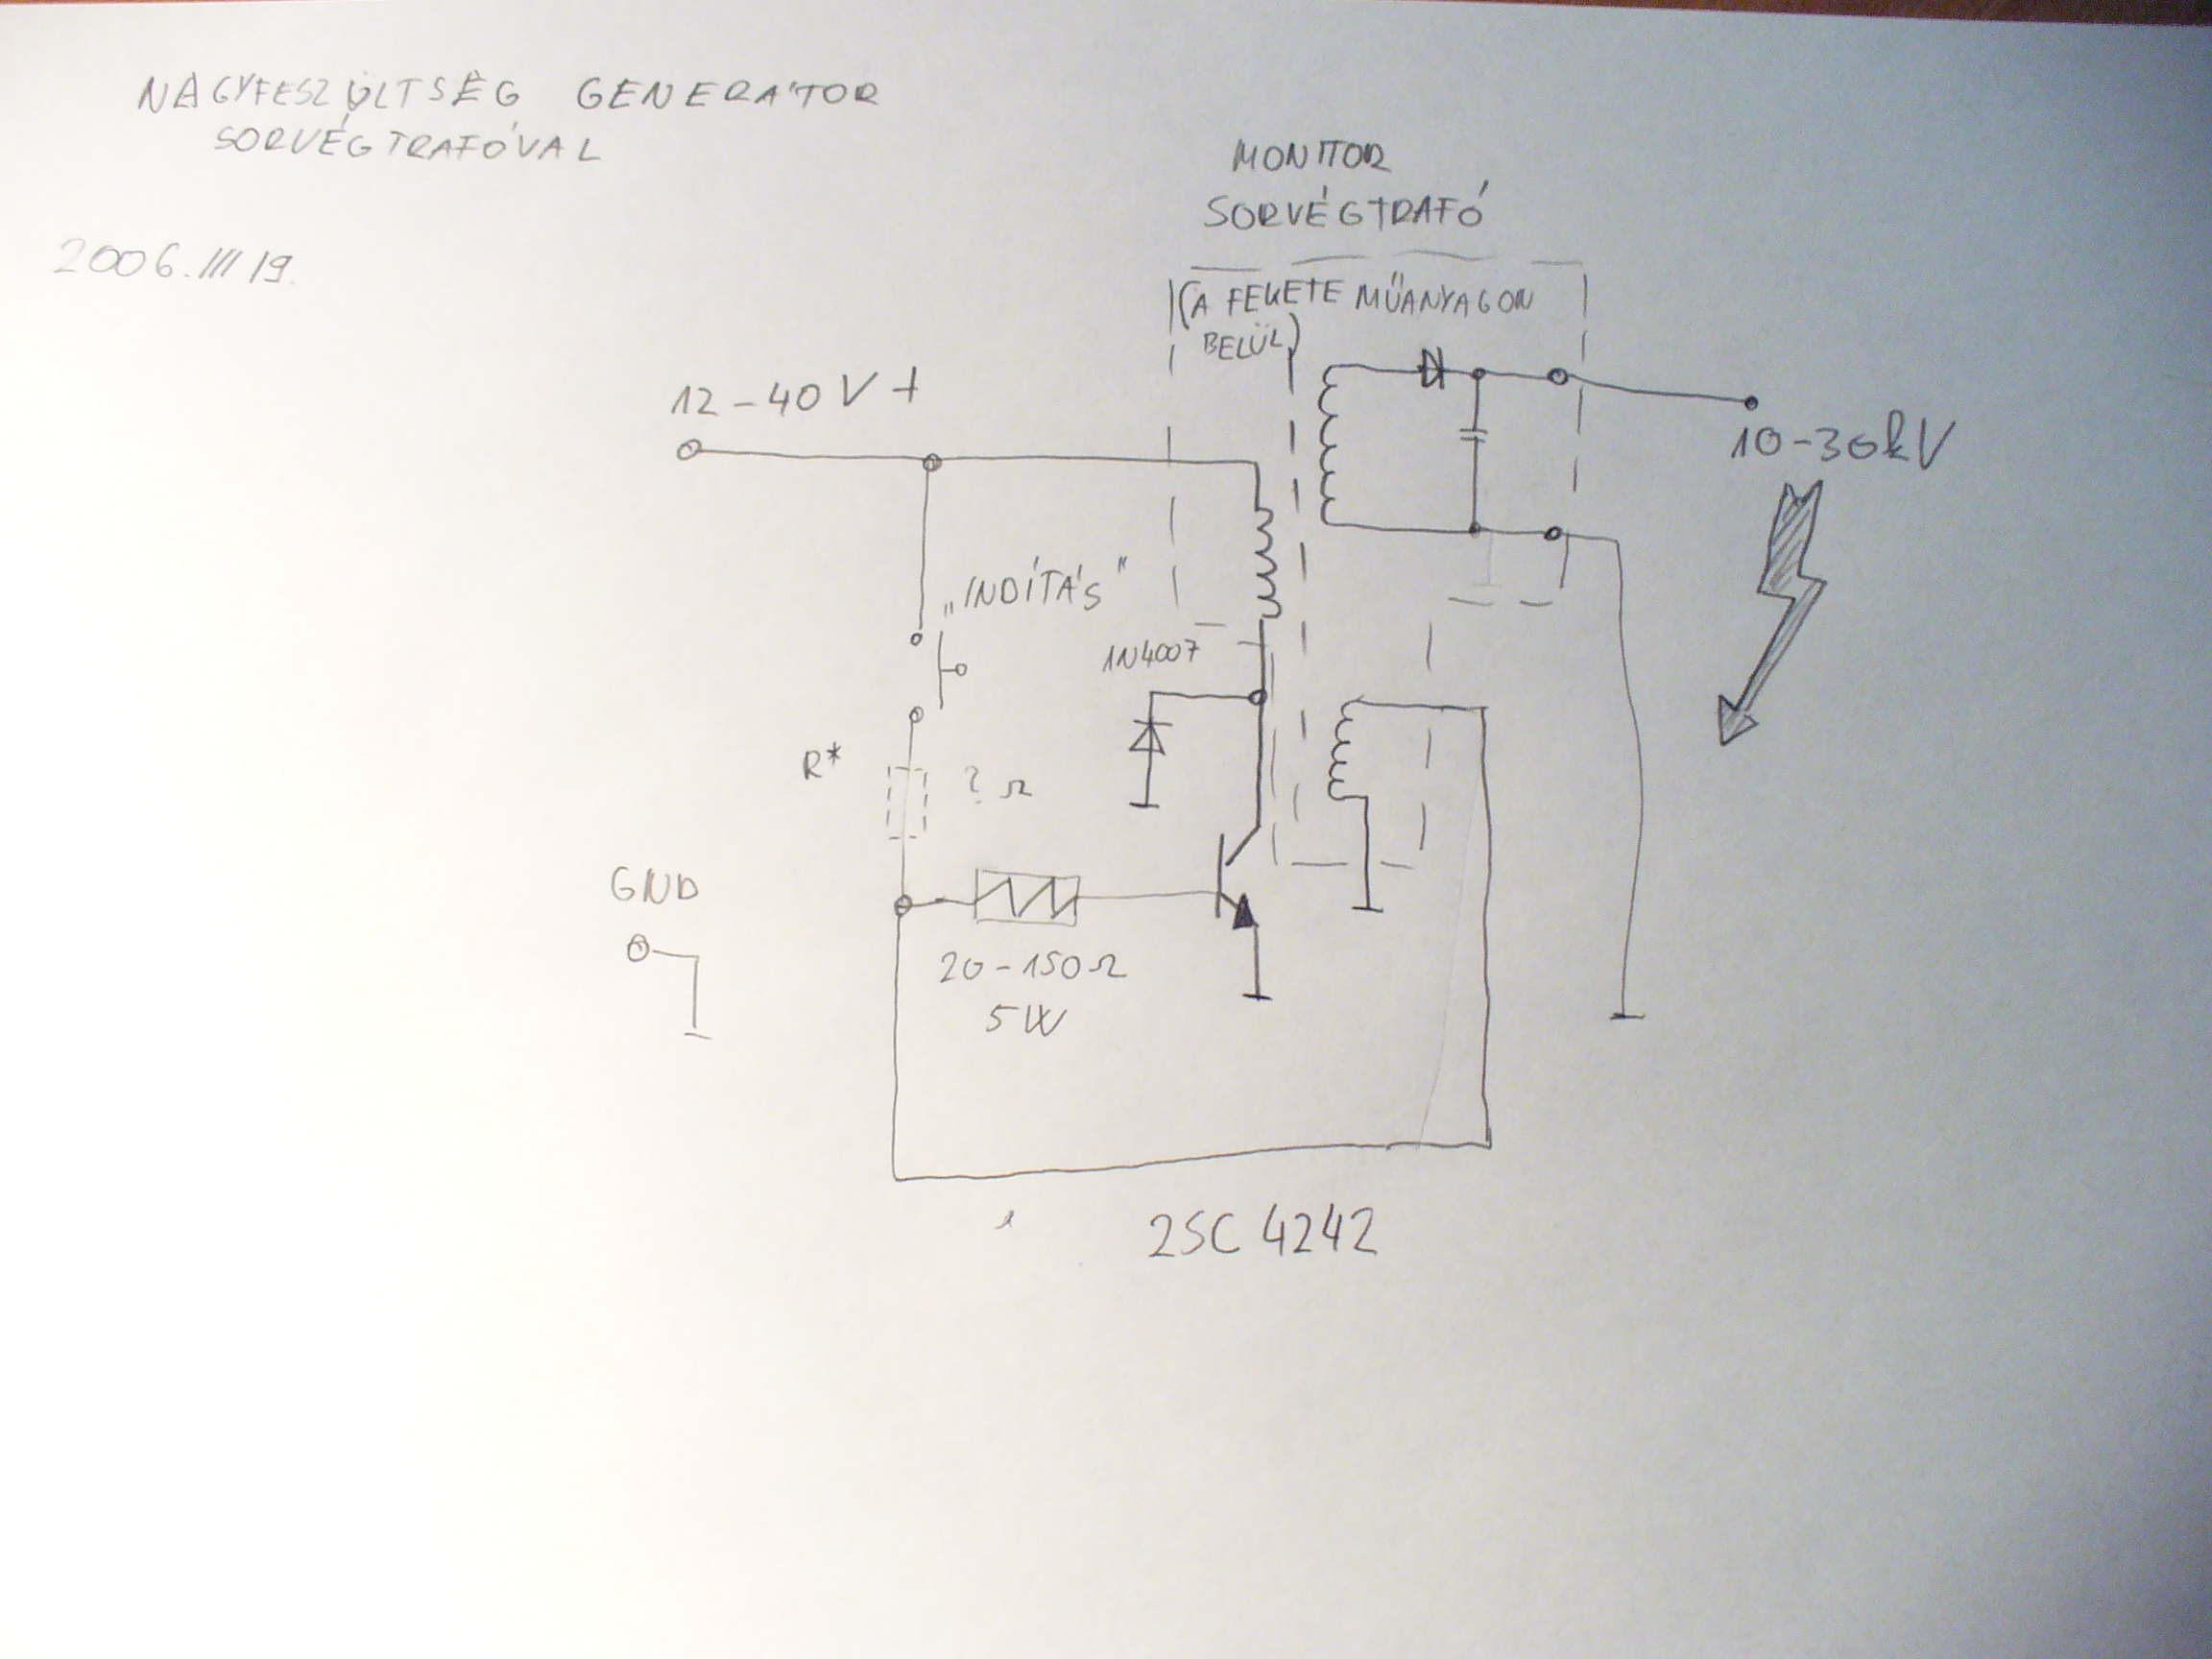 NAGYFESZÜLTSÉG GENERÁTOR
SORVÉGTRAFÓVAL
2006. III 19.
MONITOR
SORVÉGTRAFÓ
(A FEKETE MŰANYAGON
BELÜL)
12-40V +
10-30kV
„INDÍTÁS"
1N4007
R*
? Ω
GND
20-150Ω
5W
2SC 4242